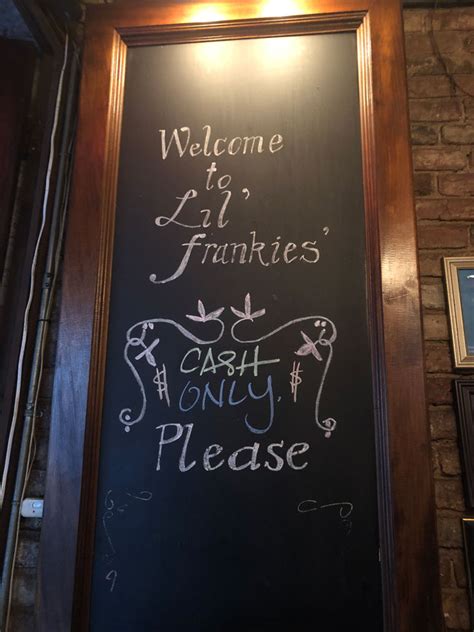 Welcome
to
Lil'
frankies'
CASH
$ ONLY, $
Please